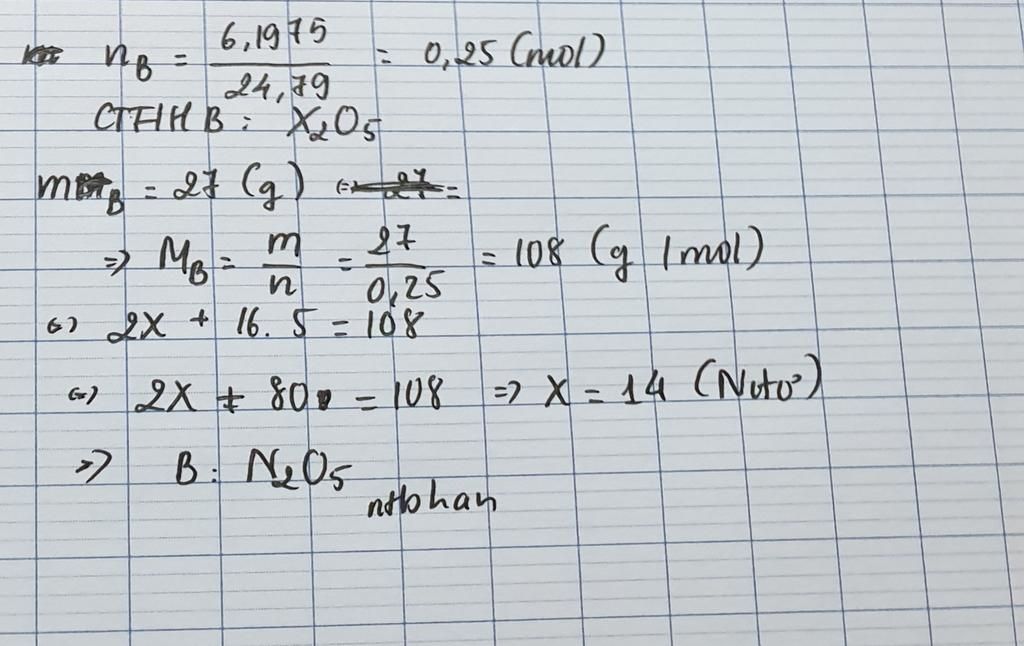 n_B = 6,1975 / 24,79 = 0,25 (mol)
CTHH B: X₂O₅
m_B = 27 (g)
=> M_B = m / n = 27 / 0,25 = 108 (g / mol)
<=> 2X + 16. 5 = 108
<=> 2X + 80 = 108 => X = 14 (Nitơ)
=> B: N₂O₅
ntbhan